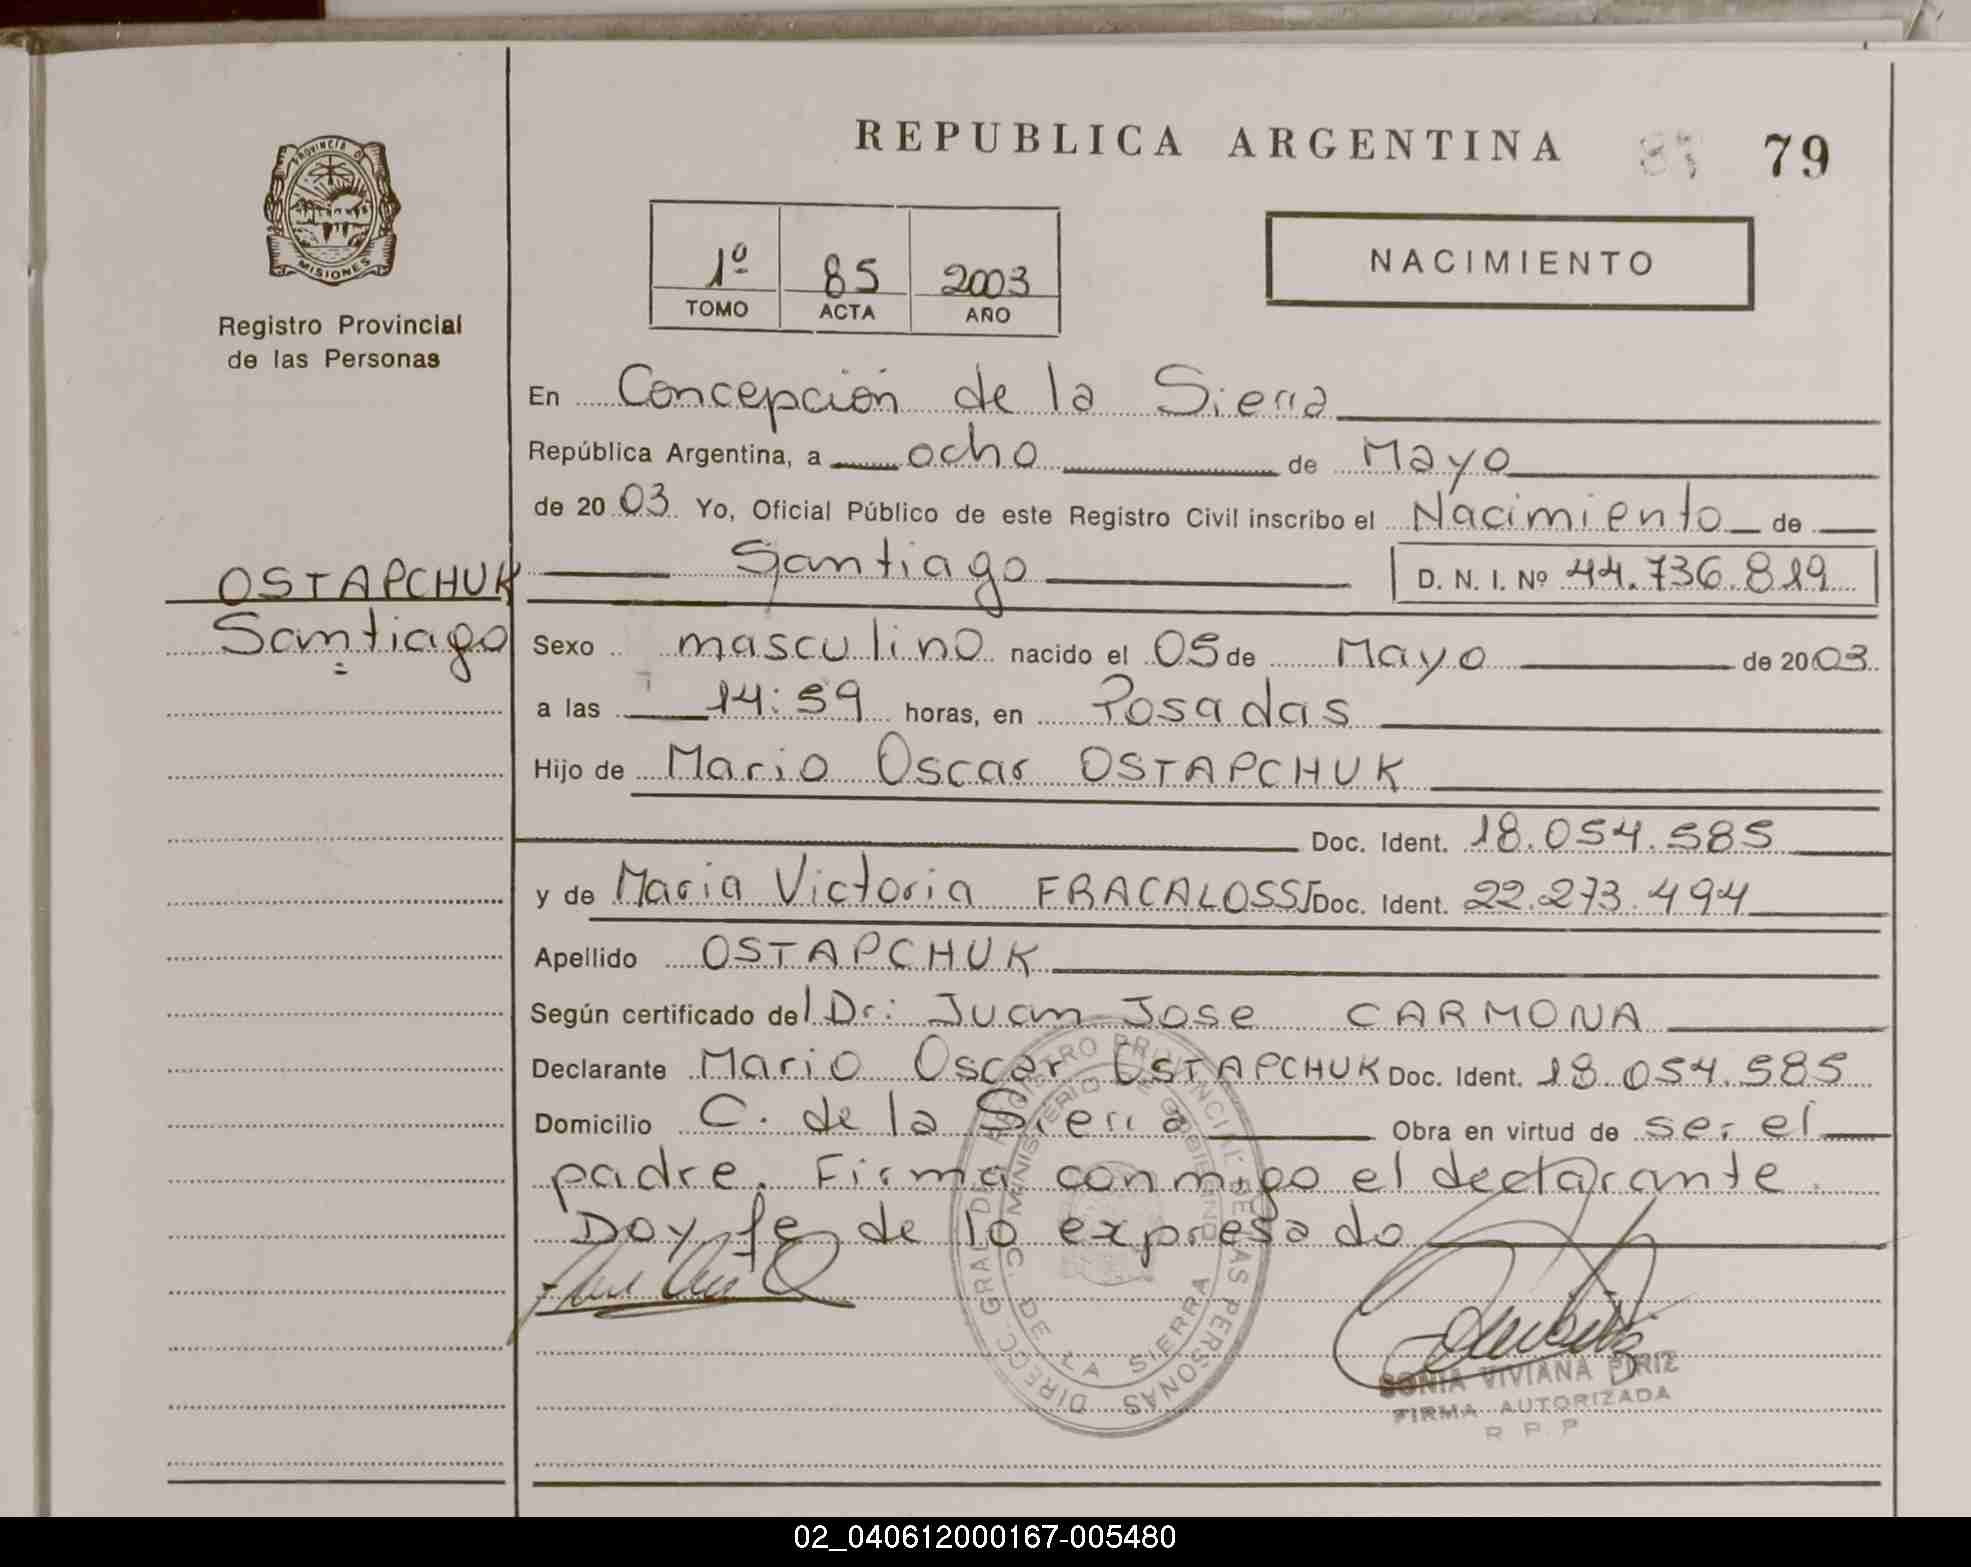 REPUBLICA ARGENTINA
79
PROVINCIA D
MISIONES
Registro Provincial
de las Personas
1º 85 2003
TOMO ACTA AÑO
NACIMIENTO
En Concepción de la Sierra
República Argentina, a ocho de Mayo
de 2003 Yo, Oficial Público de este Registro Civil inscribo el Nacimiento de
OSTAPCHUK
Santiago
Santiago D. N. I. Nº 44.736.819
Sexo masculino nacido el 05 de Mayo de 2003
a las 14:59 horas, en Posadas
Hijo de Mario Oscar OSTAPCHUK
Doc. Ident. 18.054.585
y de Maria Victoria FRACALOSSI Doc. Ident. 22.273.494
Apellido OSTAPCHUK
Según certificado del Dr: Juan Jose CARMONA
Declarante Mario Oscar OSTAPCHUK Doc. Ident. 18.054.585
Domicilio C. de la Sierra Obra en virtud de ser el
padre. Firma conmigo el declarante.
Doy fe de lo expresado
DIRECC. GRAL DE REGISTRO PROVINCIAL DE LAS PERSONAS
MINISTERIO DE GOBIERNO
C. DE LA SIERRA
SONIA VIVIANA PIRIZ
FIRMA AUTORIZADA
R P P
02_040612000167-005480